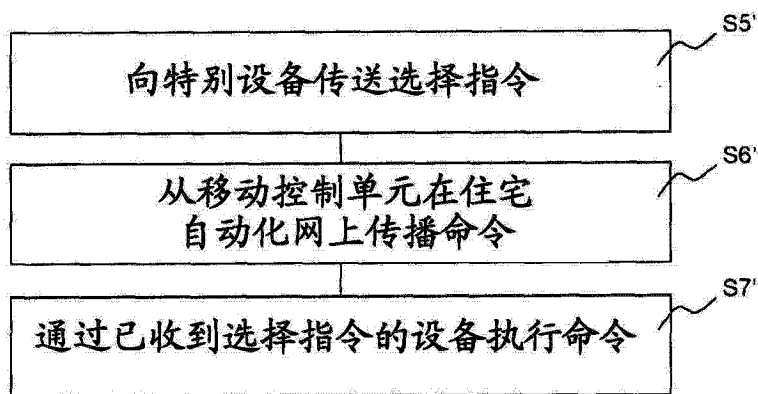 S5'
向特别设备传送选择指令
S6'
从移动控制单元在住宅
自动化网上传播命令
S7'
通过已收到选择指令的设备执行命令